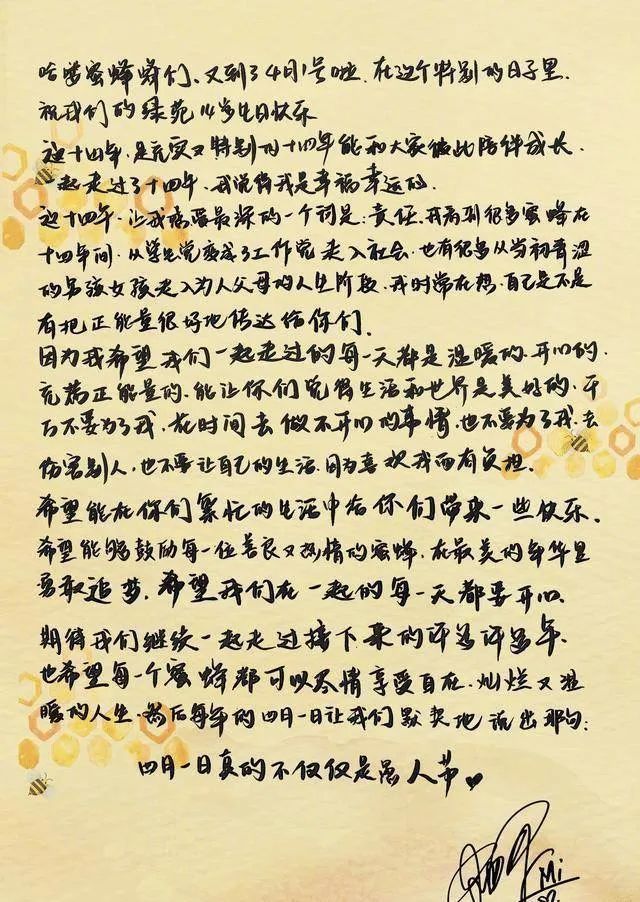 哈喽蜜蜂蜂们、又到了4月1号啦、在这个特别的日子里、
祝我们的绿苑14岁生日快乐
这十四年、是充实又特别的十四年能和大家彼此陪伴成长、
一起走过了十四年、我觉得我是幸福幸运的、
这十四年、让我感受最深的一个词是:责任、我看到很多蜜蜂在
十四年间、从学生党变成了工作党走入社会、也有很多从当初青涩
的男孩女孩走入为人父母的人生阶段、我时常在想、自己是不是
有把正能量很好地传达给你们、
因为我希望我们一起走过的每一天都是温暖的、开心的、
充满正能量的、能让你们觉得生活和世界是美好的、千
万不要为了我、花时间去做不开心的事情、也不要为了我、去
伤害别人、也不要让自己的生活、因为喜欢我而有负担、
希望能在你们繁忙的生活中给你们带来一些快乐、
希望能够鼓励每一位善良又热情的蜜蜂、在最美的年华里
勇敢追梦、希望我们在一起的每一天都要开心、
期待我们继续一起走过接下来的许多许多年、
也希望每一个蜜蜂都可以尽情享受自在、灿烂又温
暖的人生、然后每年的四月一日让我们默契地说出那句:
四月一日真的不仅仅是愚人节
Mi